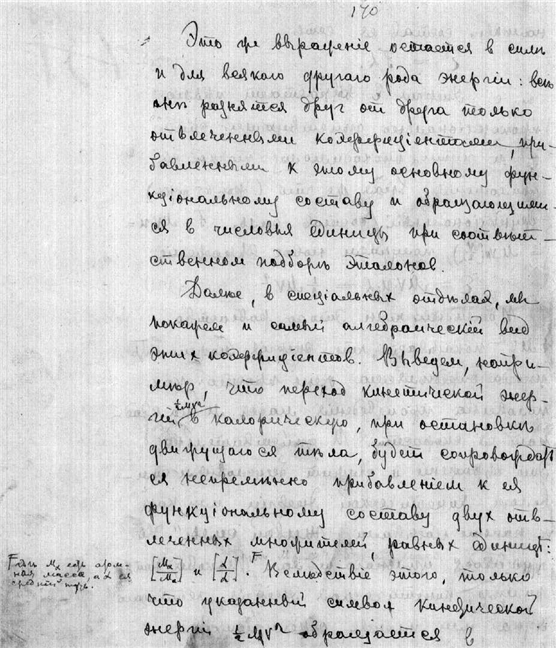 170
Это же выраженіе остается в силѣ
и для всякого другаго рода энергіи: всѣ
они разнятся друг от друга только
отвлеченными коэффиціентами, при-
бавленными к этому основному фун-
кціональному составу и обращающими-
ся в числовыя единицы при соотвѣт-
ственном подборѣ эталонов.
Далее, в спеціальных отдѣлах, мы
покажем и самый алгебраическій вид
этих коэффиціентов. Выведем, напри-
мѣр, что переход кинетической энер-
гіи ½MV² в калорическую, при остановкѣ
движущагося тѣла, будет сопровождат-
ся непремѣнно прибавленіем к ея
функціональному составу двух отв-
леченных множителей, равных единицѣ:
[Mx/Mx] и [λ/λ]. F Вслѣдствіе этого, только
что указанный символ кинетической
энергіи ½MV² обращается в
F гдѣ Mx есть атом-
ная масса, а λ ея
средній путь.